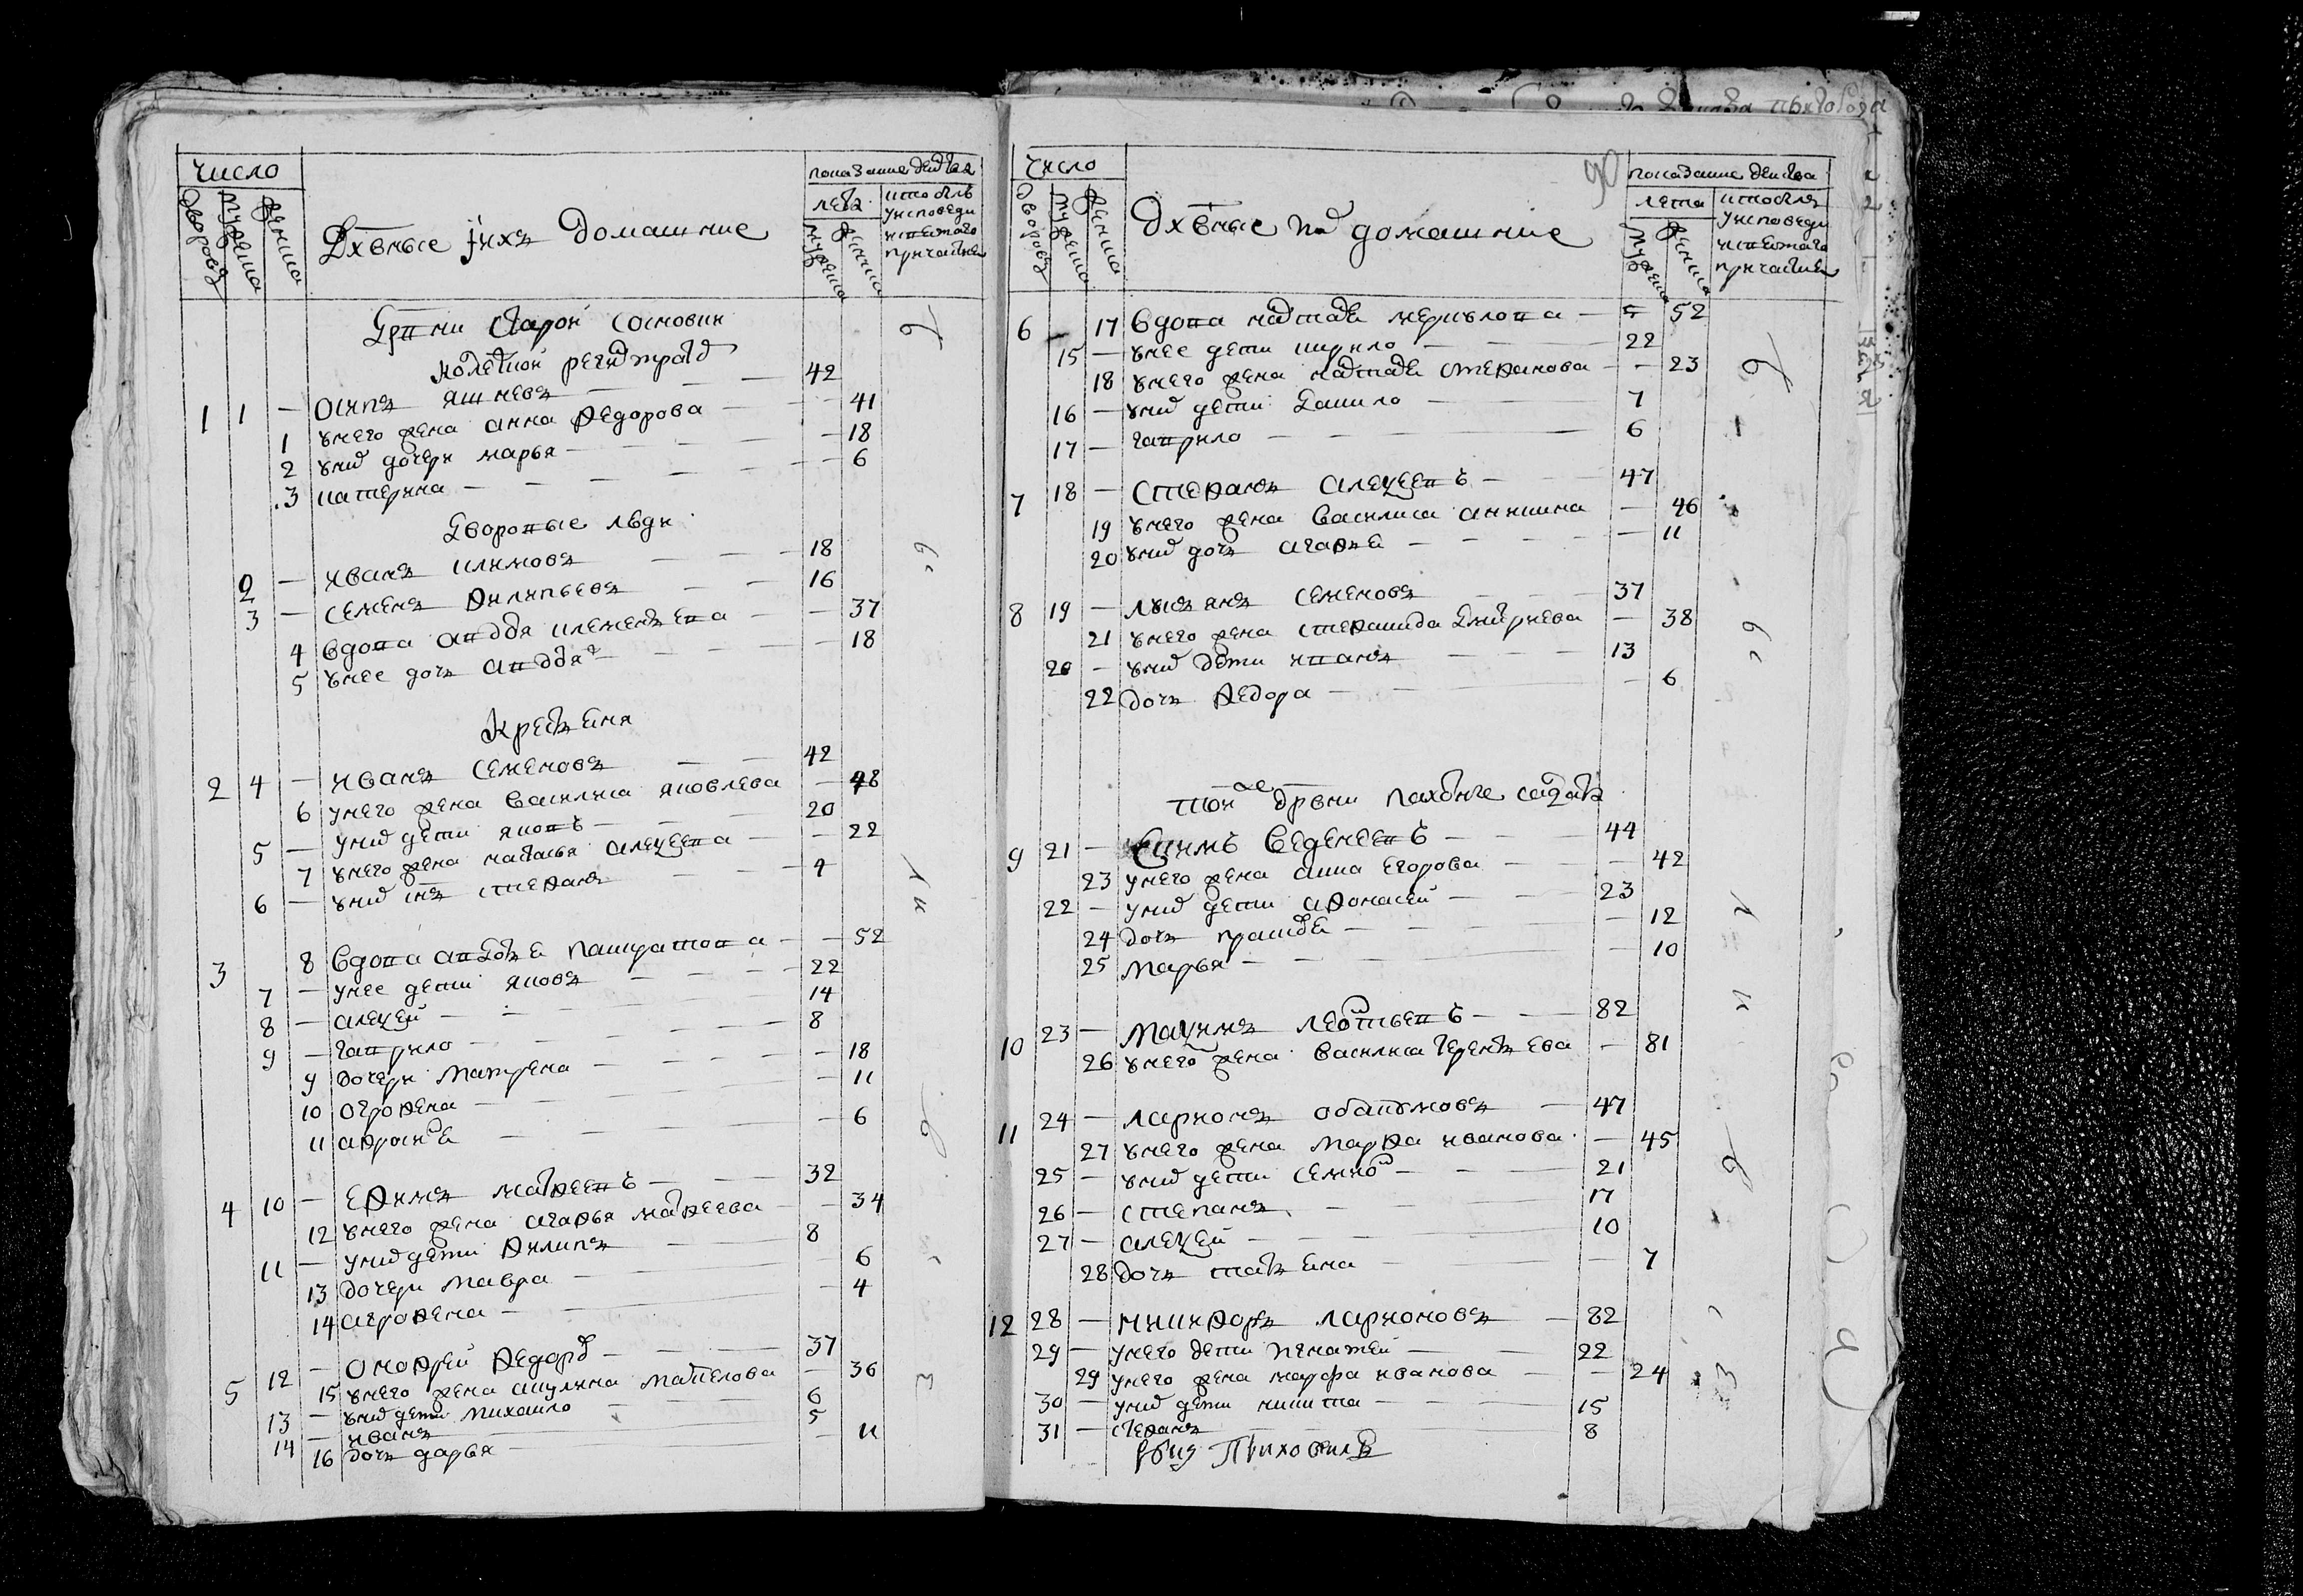 число
дворовъ мужеска женска
Дхвные ихъ домашние
показание действа
летъ
мужеска женска
кто былъ
у исповеди
и святаго
причастия
Дрвни Старой Сосновки
колежской регистратор
1 1 — Осипъ Яшневъ — — 42
1 у него жена анна федорова — — 41
2 у них дочери марья — — 18
3 катерина — — — 6
Дворовые люди
2 — иванъ климовъ — — 18
3 — семенъ филипьевъ — — 16
4 вдова авдотья клементьева — — 37
5 у нее дочь авдотья — — 18
Крестьяня
2 4 — иванъ семеновъ — — 42
6 у него жена василиса яковлева — 48
5 — у них дети яковъ — — 20
7 у него жена наталья алексеева — — 22
6 — у них снъ стефанъ — — 4
3 8 вдова авдотья панкратова — — 52
7 — у нее дети яковъ — — 22
8 — алексей — — 14
9 — гаврило — — 8
9 дочери матрена — — 18
10 огрофена — — 11
11 афросинья — — 6
4 10 — ефимъ матвеевъ — — 32
12 у него жена агафья матвеева — — 34
11 — у них дети филипъ — 8
13 дочери мавра — 6
14 аграфена — — 4
5 12 — онофрей федоров — — 37
15 у него жена акулина савелова — 36
13 — у них дети михаило — 6
14 — иванъ — 5
16 дочь дарья — — 11
90
число
дворовъ мужеска женска
Дхвные ихъ домашние
показание действа
лета
мужеска женска
кто былъ
у исповеди
и святаго
причастия
6 — 17 вдова настасья — — 52
15 — у нее дети кирило — 22
18 у него жена настасья стефанова — — 23
16 — у них дети данило — — 7
17 — гаврило — — 6
7 18 — стефанъ алексеевъ — — 47
19 у него жена василиса аникина — 46
20 у них дочь агафья — — 11
8 19 — лукьянъ семеновъ — — 37
21 у него жена степанида дмитриева — 38
20 — у них дети иванъ — — 13
22 дочь федора — — 6
той же дрвни пахотные салдаты
9 21 — Екимъ Веденеевъ — — 44
23 у него жена анна егорова — — 42
22 — у них дети афонасей — — 23
24 дочь прасковья — — 12
25 марья — — 10
10 23 — максимъ леонтьевъ — — 82
26 у него жена василиса терентьева — 81
11 24 — ларионъ — 47
27 у него жена марфа иванова — 45
25 — у них дети семион — — 21
26 — степанъ — — 17
27 — алексей — — 10
28 дочь татьяна — — 7
12 28 — никифоръ ларионовъ — 82
29 — у него дети игнатей — 22
29 у него жена марфа иванова — — 24
30 — у них дети никита — — 15
31 — стефанъ — — 8